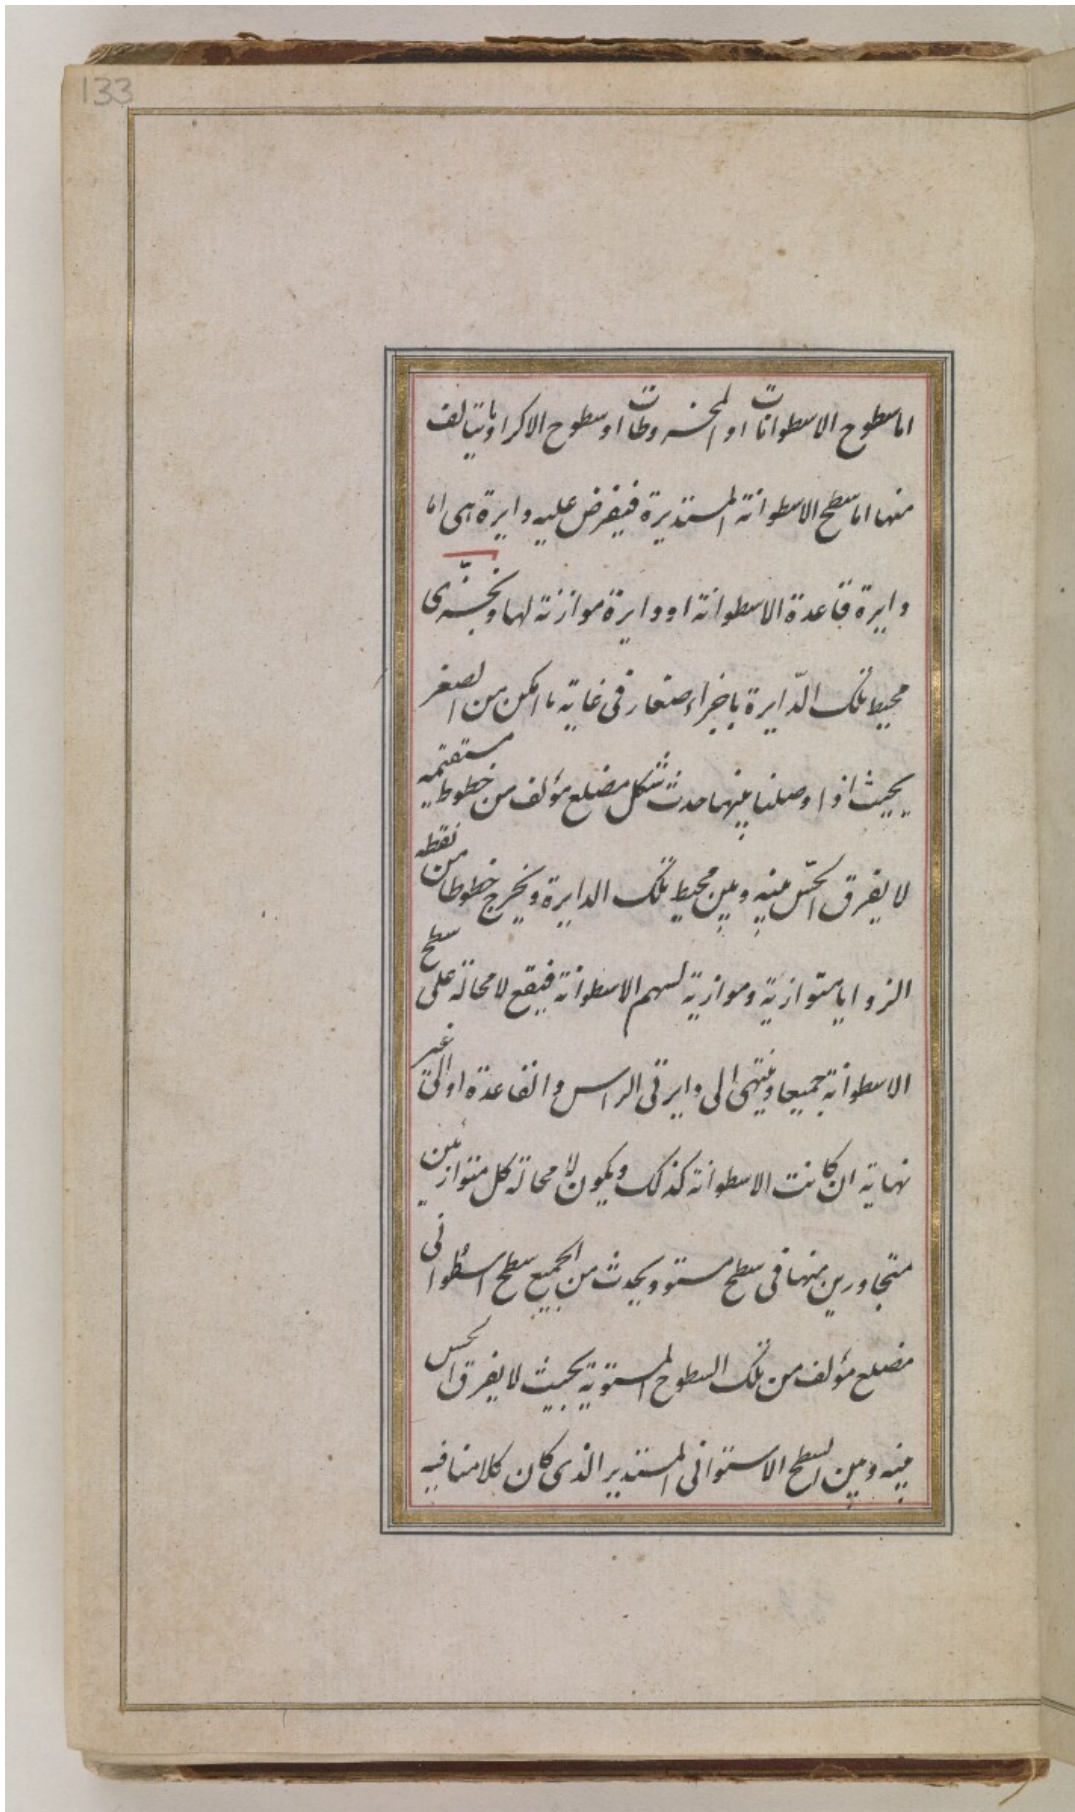 133
اما سطوح الاسطوانات او المخروطات او سطوح الاكر او ما يتالف
منها اما سطح الاسطوانة المستديرة فيفرض عليه دايرة هى اما
دايرة قاعدة الاسطوانة او دايرة موازنة لها ويجزى
محيط تلك الدّايرة باجزاء صغار فى غاية ما امكن من الصغر
بحيث اذا وصلنا بينها حدث شكل مضلع مؤلف من خطوط مستقيمه
لا يفرق الحسّ بينه وبين محيط تلك الدايرة ويخرج خطوطا من نقطه
الزوايا متوازية وموازية لسهم الاسطوانة فيقع لا محالة على سطح
الاسطوانة جميعا وينتهى الى دايرتى الراس والقاعدة او الى غير
نهاية ان كانت الاسطوانة كذلك ويكون لا محالة كل متوازيين
متجاورين منها فى سطح مستو ويحدث من الجميع سطح اسطوانى
مضلع مؤلف من تلك السطوح المستوية بحيث لا يفرق الحس
بينه وبين السطح الاستوانى المستدير الذى كان كلامنا فيه